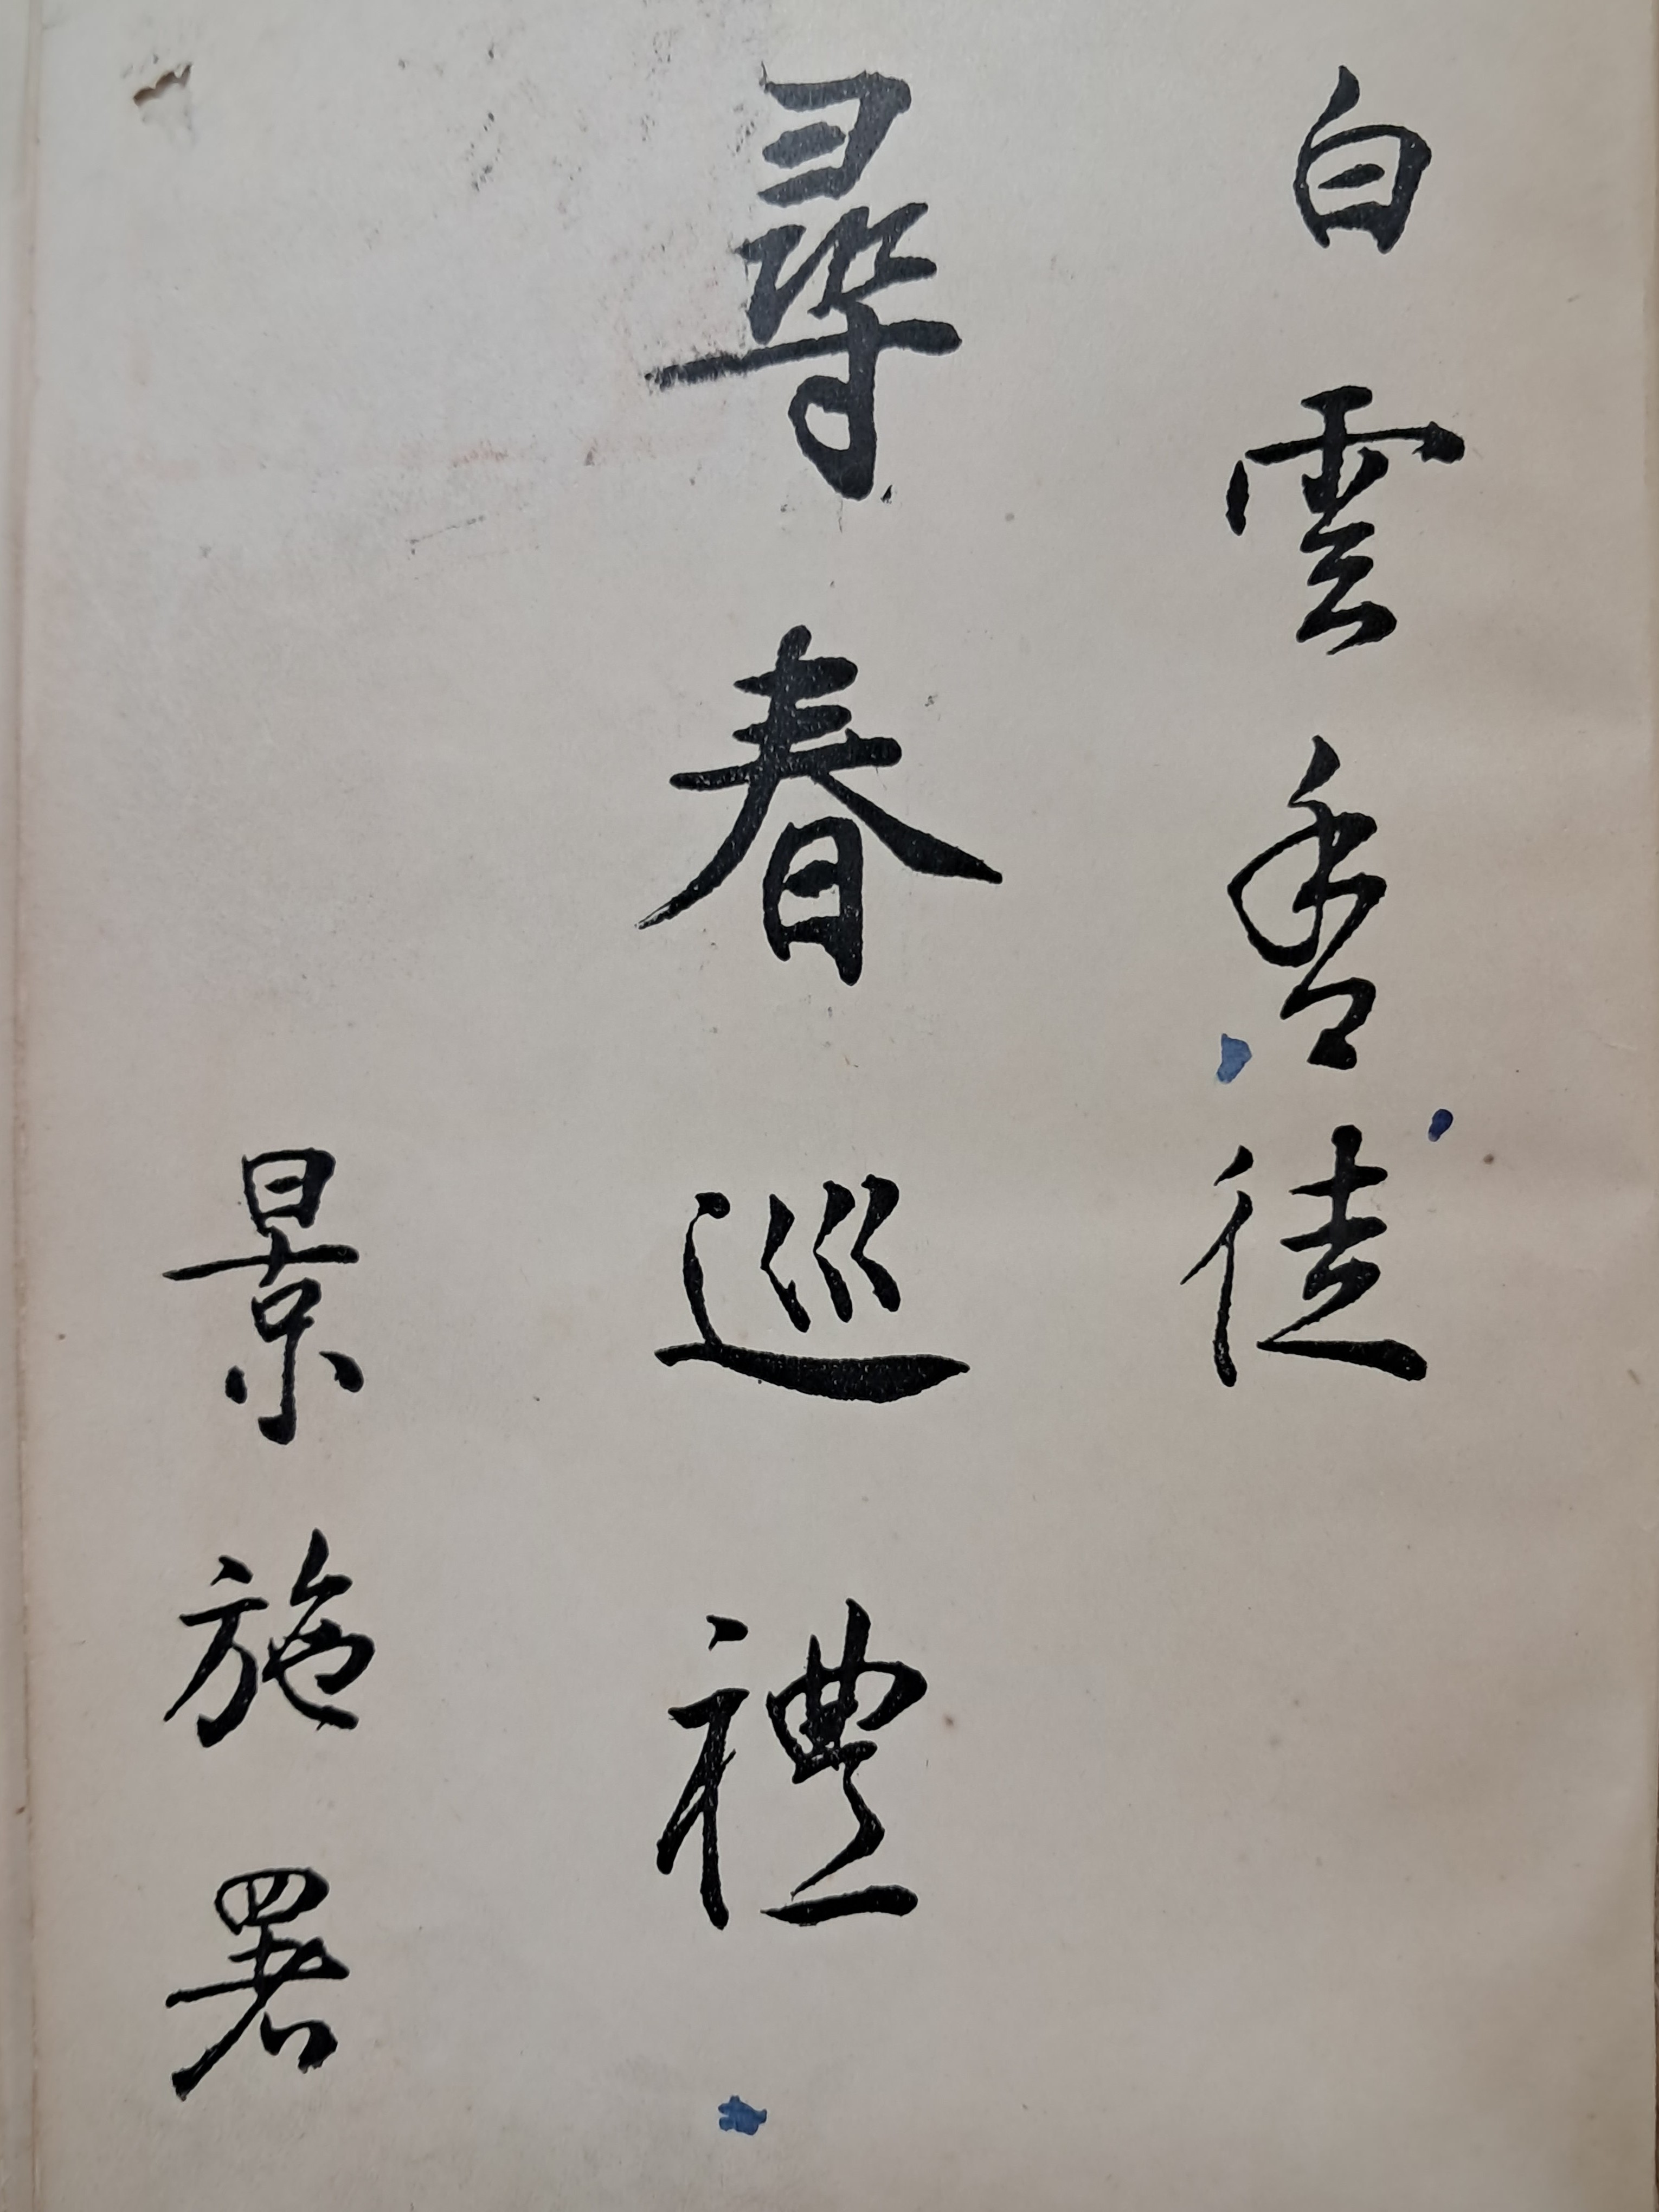 白雲香徒
尋春巡禮
景施署